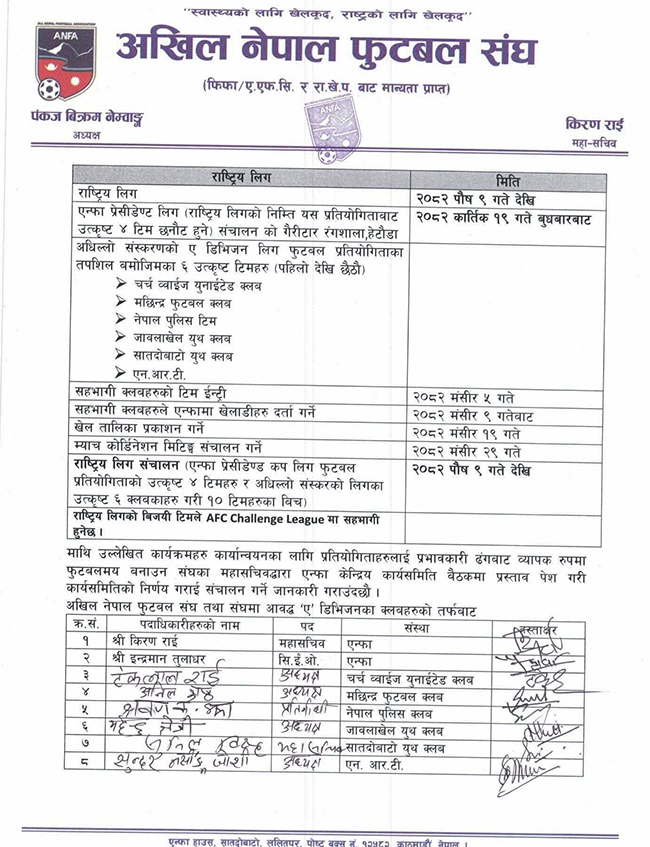 "स्वास्थ्यको लागि खेलकूद, राष्ट्रको लागि खेलकूद"
ALL NEPAL FOOTBALL ASSOCIATION
ANFA
अखिल नेपाल फुटबल संघ
(फिफा/ए.एफ.सि. र रा.खे.प. बाट मान्यता प्राप्त)
ANFA
पंकज बिक्रम नेम्वाङ्ग
अध्यक्ष
किरण राई
महा-सचिव
राष्ट्रिय लिग मिति
राष्ट्रिय लिग २०८२ पौष ९ गते देखि
एन्फा प्रेसीडेण्ट लिग (राष्ट्रिय लिगको निम्ति यस प्रतियोगिताबाट २०८२ कार्तिक १९ गते बुधबारबाट
उत्कृष्ट ४ टिम छनौट हुने) संचालन को गैरीटार रंगशाला,हेटौडा
अधिल्लो संस्करणको ए डिभिजन लिग फुटबल प्रतियोगिताका
तपशिल वमोजिमका ६ उत्कृष्ट टिमहरु (पहिलो देखि छैठौ)
➢ चर्च व्वाईज युनाईटेड क्लब
➢ मछिन्द्र फुटबल क्लब
➢ नेपाल पुलिस टिम
➢ जावलाखेल युथ क्लब
➢ सातदोबाटो युथ क्लब
➢ एन.आर.टी.
सहभागी क्लवहरुको टिम ईन्ट्री २०८२ मंसीर ५ गते
सहभागी क्लवहरुले एन्फामा खेलाडीहरु दर्ता गर्ने २०८२ मंसीर ९ गतेवाट
खेल तालिका प्रकाशन गर्ने २०८२ मंसीर १९ गते
म्याच कोर्डिनेशन मिटिङ्ग संचालन गर्ने २०८२ मंसीर २९ गते
राष्ट्रिय लिग संचालन (एन्फा प्रेसीडेण्ड कप लिग फुटबल २०८२ पौष ९ गते देखि
प्रतियोगिताको उत्कृष्ट ४ टिमहरु र अधिल्लो संस्करको लिगका
उत्कृष्ट ६ क्लवकाहरु गरी १० टिमहरुका विच)
राष्ट्रिय लिगको बिजयी टिमले AFC Challenge League मा सहभागी
हुनेछ ।
माथि उल्लेखित कार्यक्रमहरु कार्यान्वयनका लागि प्रतियोगिताहरुलाई प्रभावकारी ढंगवाट व्यापक रुपमा
फुटबलमय बनाउन संघका महासचिवद्धारा एन्फा केन्द्रिय कार्यसमिति बैठकमा प्रस्ताव पेश गरी
कार्यसमितिको निर्णय गराई संचालन गर्ने जानकारी गराउंदछौ ।
अखिल नेपाल फुटबल संघ तथा संघमा आवद्ध 'ए' डिभिजनका क्लवहरुको तर्फवाट
क्र.सं. पदाधिकारीहरुको नाम पद संस्था हस्ताक्षर
१ श्री किरण राई महासचिव एन्फा
२ श्री इन्द्रमान तुलाधर सि.ई.ओ. एन्फा
३ टंकलाल राई अध्यक्ष चर्च व्वाईज युनाईटेड क्लब
४ अनिल श्रेष्ठ अध्यक्ष मछिन्द्र फुटबल क्लब
५ प्रतिनिधी नेपाल पुलिस क्लब
६ अध्यक्ष जावलाखेल युथ क्लब
७ महासचिव सातदोबाटो युथ क्लब
८ सुन्दर जोशी अध्यक्ष एन. आर. टी.
एन्फा हाउस, सातदोबाटो, ललितपुर, पोष्ट बक्स नं. १२५८२, काठमाडौं, नेपाल ।